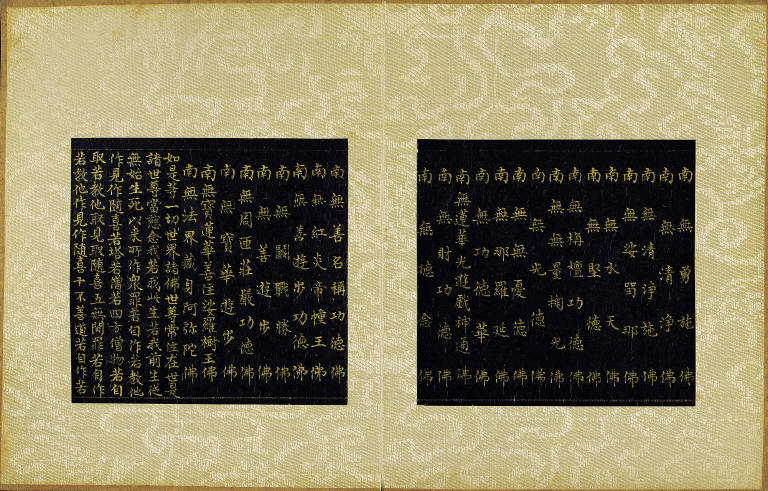 南無勇施佛
南無清淨佛
南無清淨施佛
南無娑留那佛
南無水天佛
南無堅德佛
南無栴檀功德佛
南無無量掬光佛
南無光德佛
南無無憂德佛
南無那羅延佛
南無功德華佛
南無蓮華光遊戲神通佛
南無財功德佛
南無德念佛
南無善名稱功德佛
南無紅炎帝幢王佛
南無善遊步功德佛
南無鬪戰勝佛
南無善遊步佛
南無周匝莊嚴功德佛
南無寶華遊步佛
南無寶蓮華善住娑羅樹王佛
南無法界藏身阿弥陀佛
如是等一切世界諸佛世尊常住在世是
諸世尊當慈念我若我此生若我前生從
無始生死以來所作衆罪若自作若教他
作見作随喜若塔若僧若四方僧物若自
取若教他取見取随喜五無間罪若自作
若教他作見作随喜十不善道若自作若